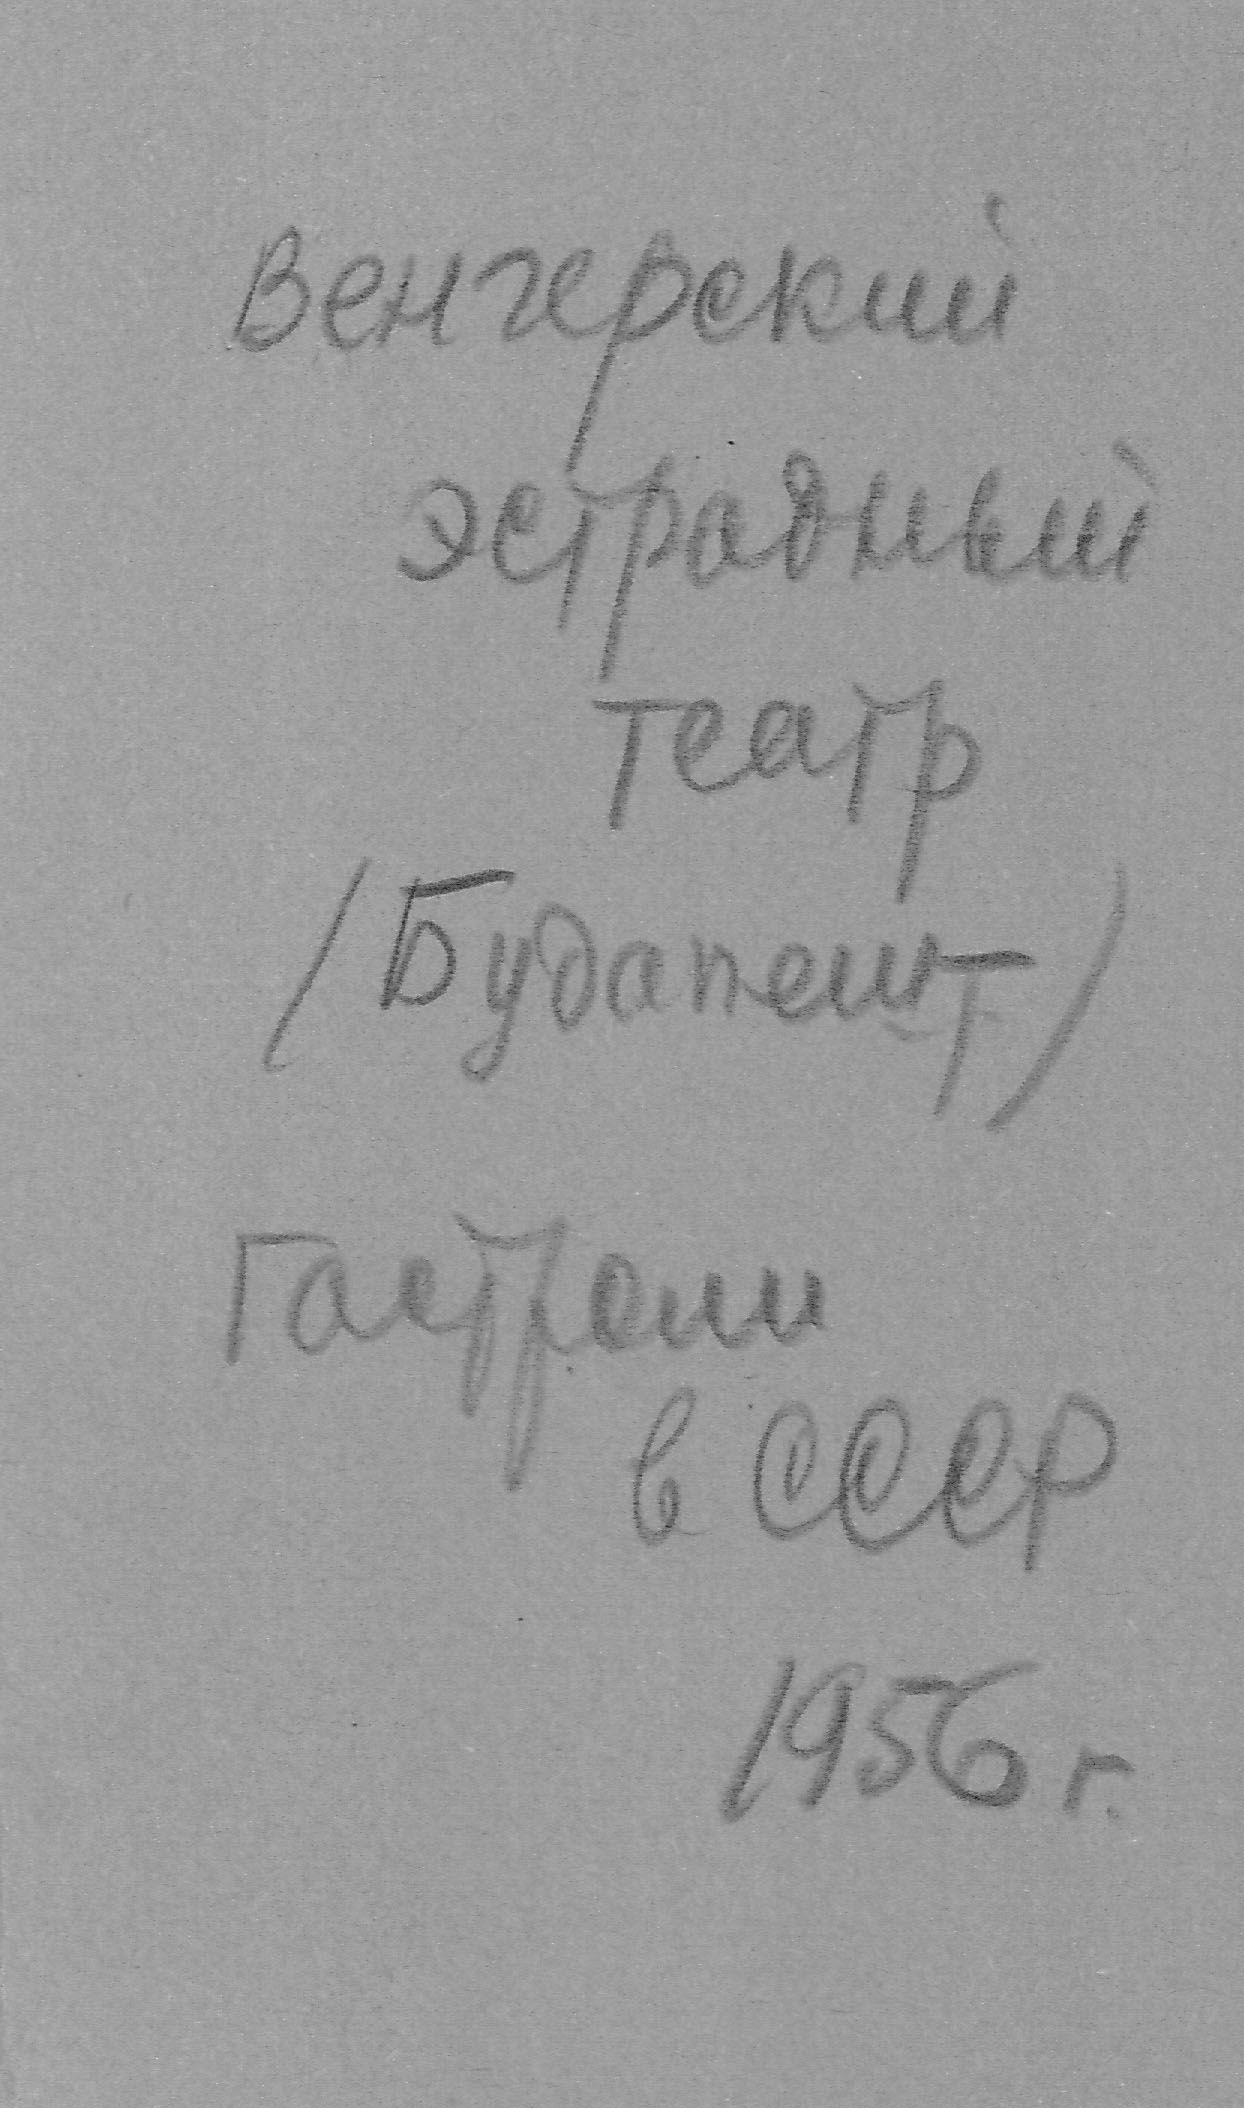 Венгерский
эстрадный
театр
(Будапешт)
Гастроли
в СССР
1956 г.